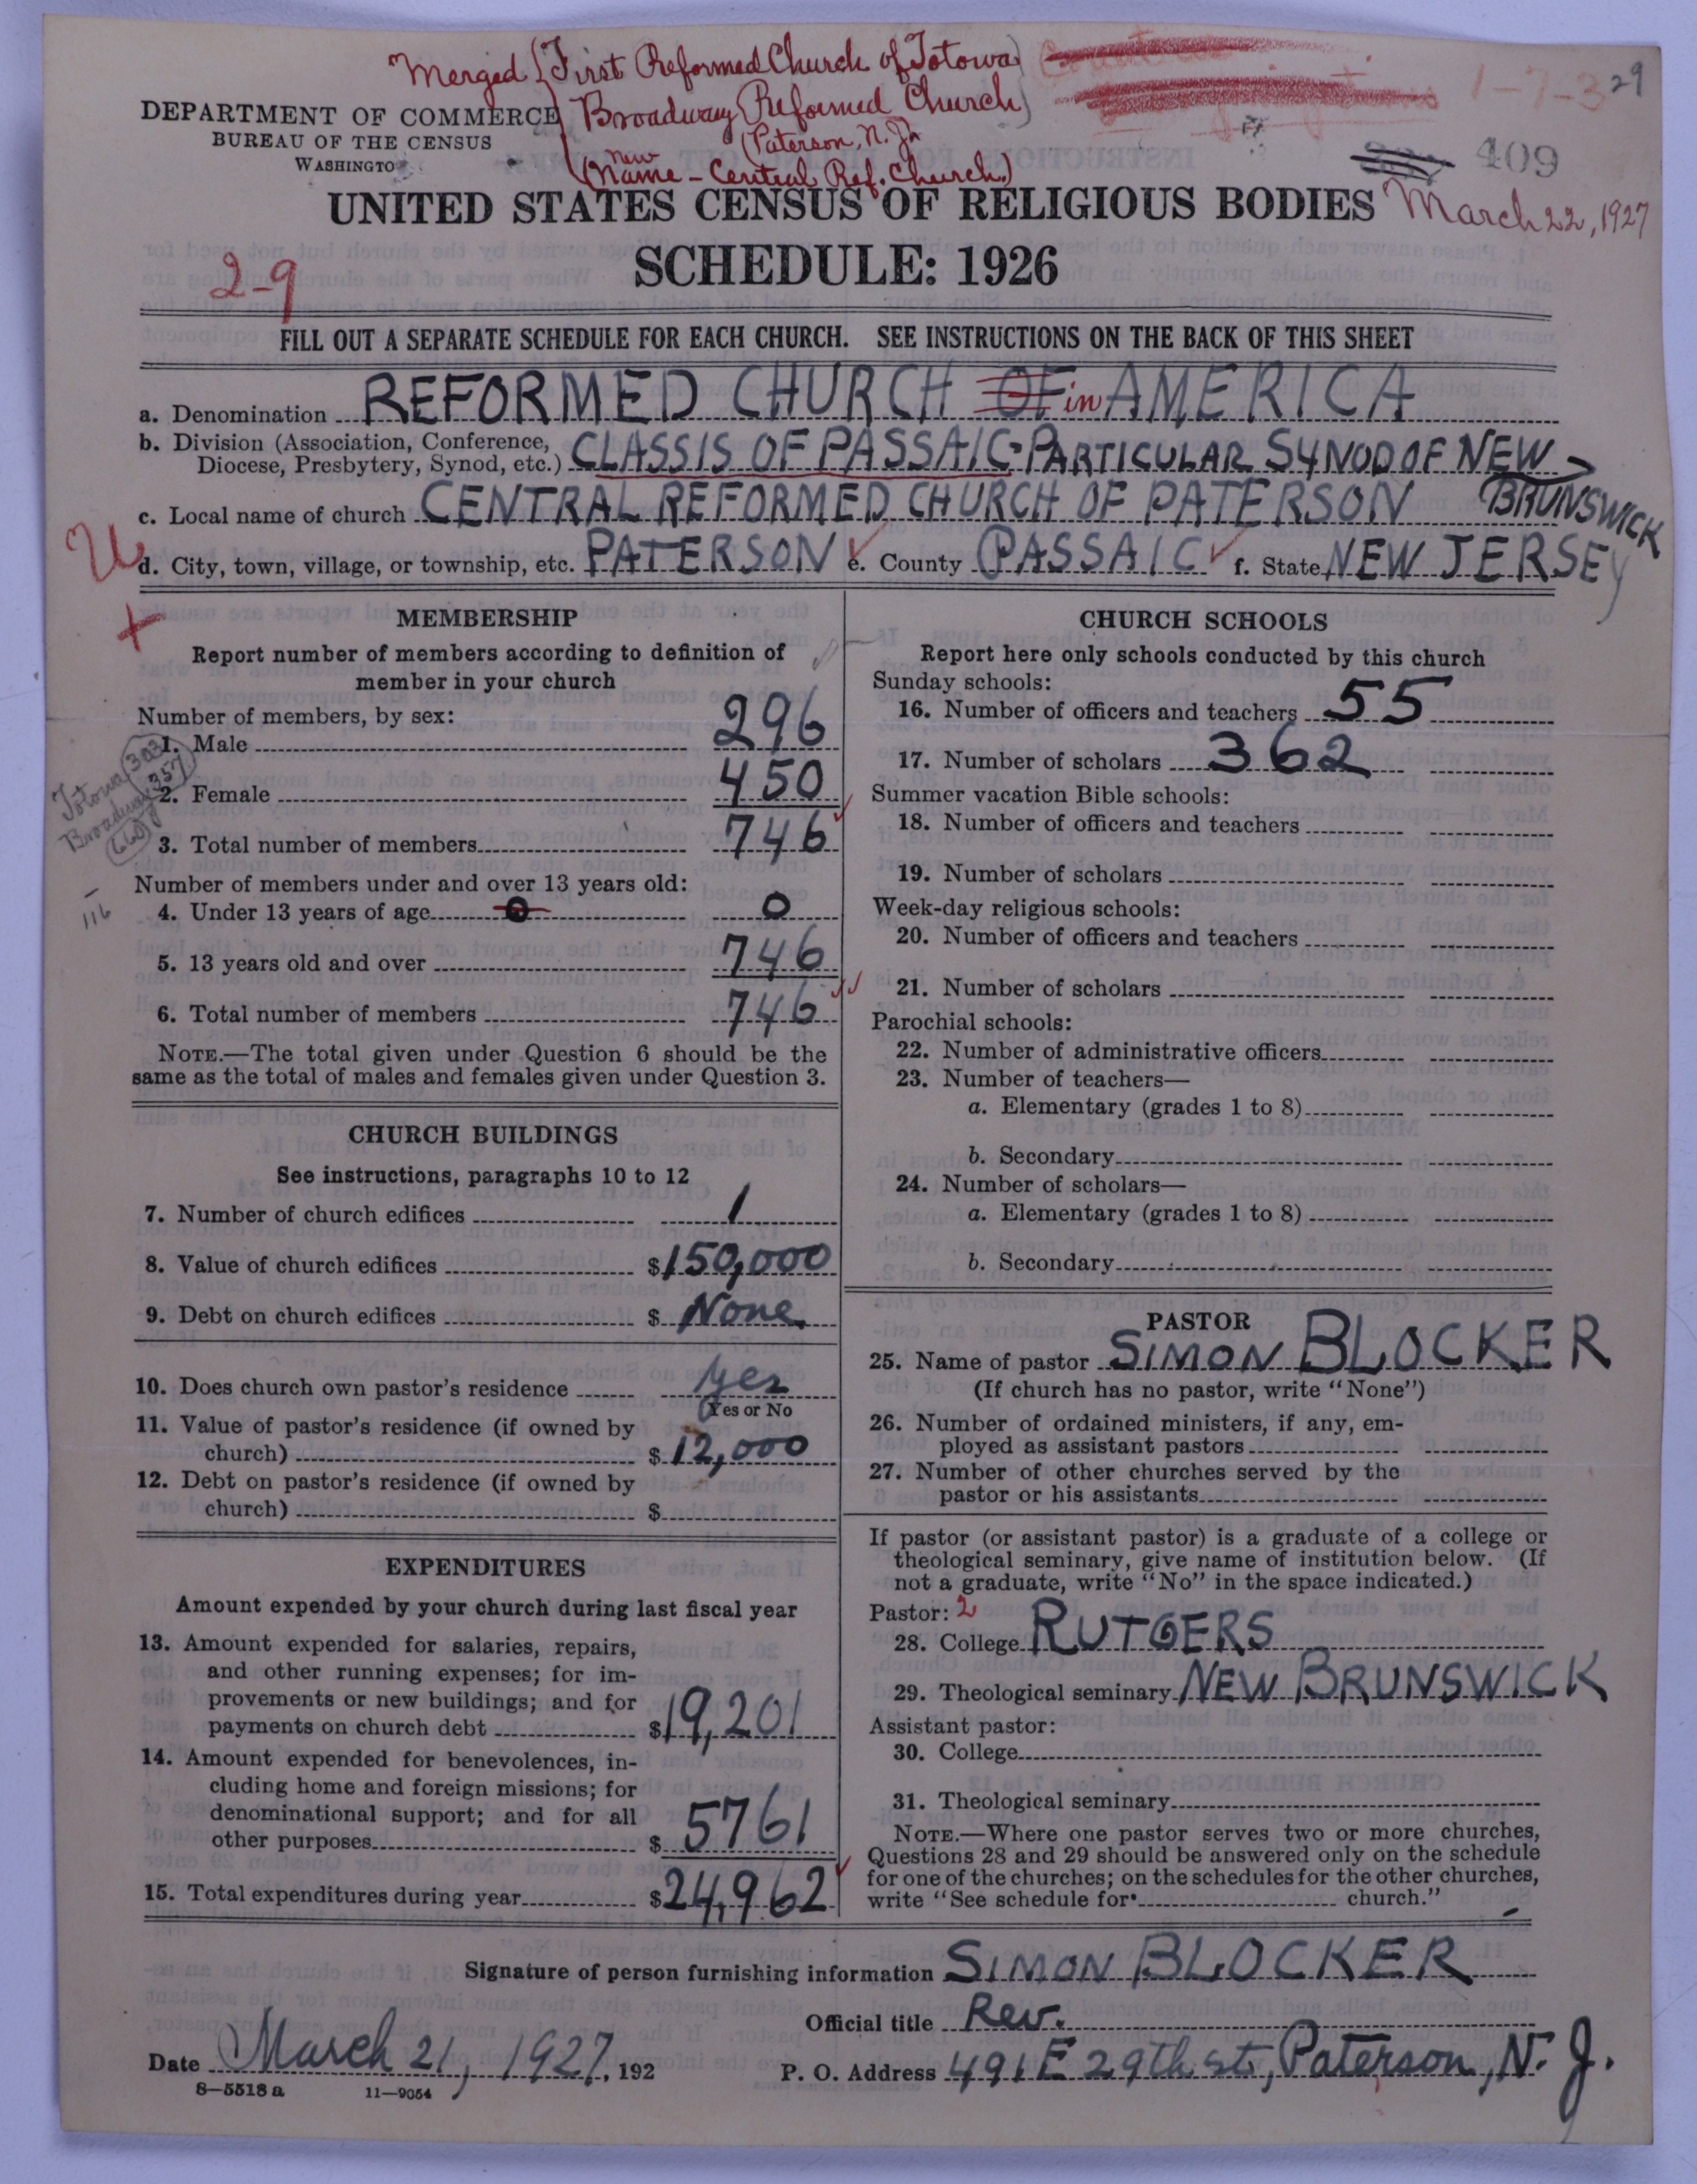 Merged {First Reformed Church of Totowa}
Broadway Reformed Church)
(Paterson, N.J.)
(New Name - Central Ref. Church.)
1-7-3 29
409
March 22, 1927
DEPARTMENT OF COMMERCE
BUREAU OF THE CENSUS
WASHINGTO
UNITED STATES CENSUS OF RELIGIOUS BODIES
SCHEDULE: 1926
2-9
FILL OUT A SEPARATE SCHEDULE FOR EACH CHURCH. SEE INSTRUCTIONS ON THE BACK OF THIS SHEET
a. Denomination REFORMED CHURCH OF in AMERICA
b. Division (Association, Conference, Diocese, Presbytery, Synod, etc.) CLASSIS OF PASSAIC-PARTICULAR SYNOD OF NEW BRUNSWICK
c. Local name of church CENTRAL REFORMED CHURCH OF PATERSON
d. City, town, village, or township, etc. PATERSON e. County PASSAIC f. State NEW JERSEY
MEMBERSHIP
Report number of members according to definition of
member in your church
Number of members, by sex:
1. Male 296
2. Female 450
3. Total number of members 746
Totowa 303
Broadway 357
660
116
Number of members under and over 13 years old:
4. Under 13 years of age 0 0
5. 13 years old and over 746
6. Total number of members 746
NOTE.—The total given under Question 6 should be the
same as the total of males and females given under Question 3.
CHURCH BUILDINGS
See instructions, paragraphs 10 to 12
7. Number of church edifices 1
8. Value of church edifices $150,000
9. Debt on church edifices $ None
10. Does church own pastor's residence yes
(Yes or No
11. Value of pastor's residence (if owned by
church) $12,000
12. Debt on pastor's residence (if owned by
church) $
EXPENDITURES
Amount expended by your church during last fiscal year
13. Amount expended for salaries, repairs,
and other running expenses; for im-
provements or new buildings; and for
payments on church debt $19,201
14. Amount expended for benevolences, in-
cluding home and foreign missions; for
denominational support; and for all
other purposes $ 5761
15. Total expenditures during year $24,962
CHURCH SCHOOLS
Report here only schools conducted by this church
Sunday schools:
16. Number of officers and teachers 55
17. Number of scholars 362
Summer vacation Bible schools:
18. Number of officers and teachers
19. Number of scholars
Week-day religious schools:
20. Number of officers and teachers
21. Number of scholars
Parochial schools:
22. Number of administrative officers
23. Number of teachers—
a. Elementary (grades 1 to 8)
b. Secondary
24. Number of scholars—
a. Elementary (grades 1 to 8)
b. Secondary
PASTOR
25. Name of pastor SIMON BLOCKER
(If church has no pastor, write "None")
26. Number of ordained ministers, if any, em-
ployed as assistant pastors
27. Number of other churches served by the
pastor or his assistants
If pastor (or assistant pastor) is a graduate of a college or
theological seminary, give name of institution below. (If
not a graduate, write "No" in the space indicated.)
Pastor: 2
28. College RUTGERS
29. Theological seminary NEW BRUNSWICK
Assistant pastor:
30. College
31. Theological seminary
NOTE.—Where one pastor serves two or more churches,
Questions 28 and 29 should be answered only on the schedule
for one of the churches; on the schedules for the other churches,
write "See schedule for church."
Signature of person furnishing information SIMON BLOCKER
Official title Rev.
Date March 21, 1927, 192 P. O. Address 491 E 29th st, Paterson, N. J.
8—5518 a 11—9054